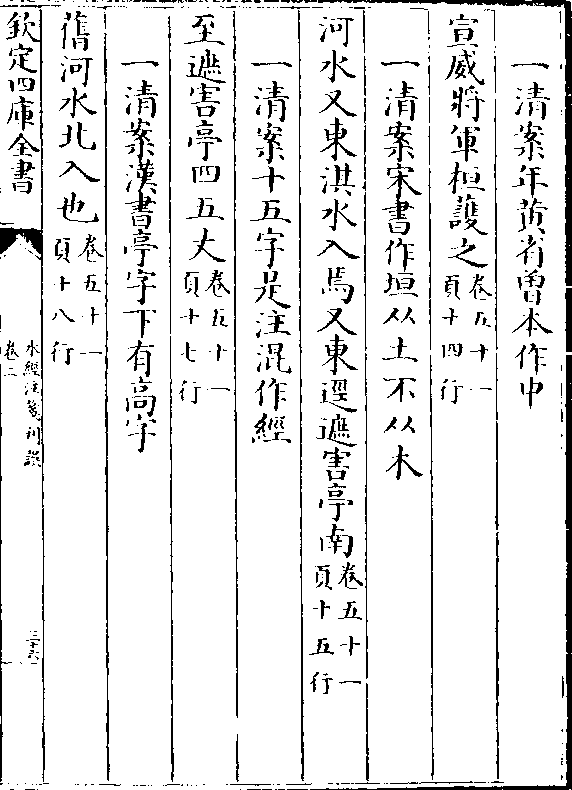 一清案年黄省曽本作中
宣威將軍桓䕶之卷五十一頁十四行
一清案宋書作垣从土不从木
河水又東淇水入焉又東逕遮害亭南卷五十一頁十五行
一清案十五字是注混作經
至遮害亭四五丈卷五十一頁十七行
一清案漢書亭字下有高字
舊河水北入也卷五十一頁十八行
欽定四庫全書
水經注箋刊誤
卷二
三十六